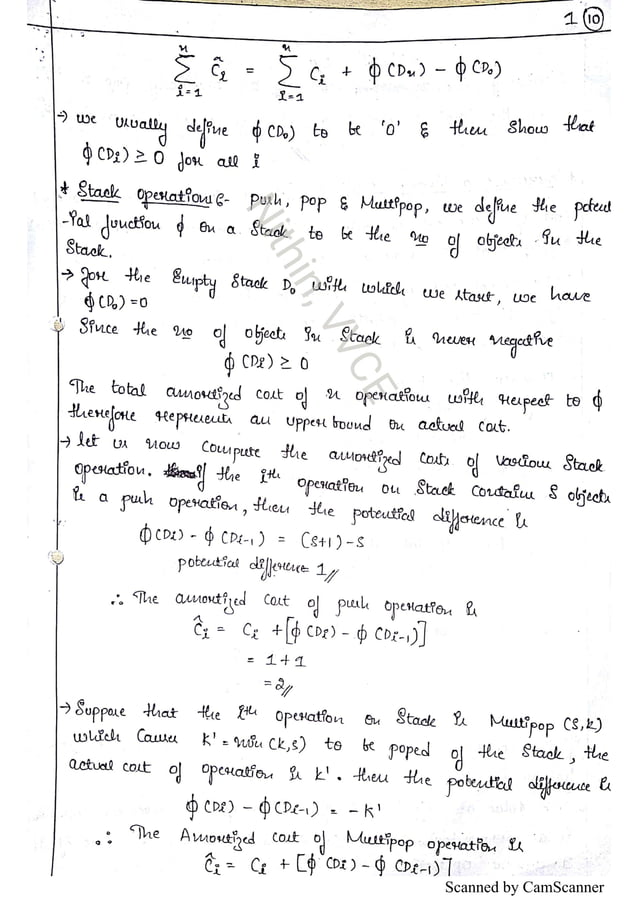 1 (10)
n∑i=1 Ĉi = n∑i=1 Ci + ϕ(Dn) − ϕ(D0)
→ we usually define ϕ(D0) to be '0' & then show that
ϕ(Di) ≥ 0 for all i
* Stack operations :- Push, pop & Multipop, we define the potent
-ial function ϕ on a stack to be the no of objects in the
Stack.
→ for the Empty stack D0 with which we start, we have
ϕ(D0) = 0
Since the no of objects in stack is never negative
ϕ(Di) ≥ 0
The total amortized cost of n operations with respect to ϕ
therefore represents an upper bound on actual cost.
→ let us now compute the amortized costs of various stack
operation. if the ith operation on stack contains S objects
is a push operation, then the potential difference is
ϕ(Di) − ϕ(Di−1) = (S+1) − S
potential difference = 1//
∴ The amortized cost of push operation is
Ĉi = Ci + [ϕ(Di) − ϕ(Di−1)]
= 1 + 1
= 2//
→ Suppose that the ith operation on stack is Multipop (S,k)
which causes k' = min(k,s) to be poped of the stack, the
actual cost of operation is k'. then the potential difference is
ϕ(Di) − ϕ(Di−1) = −k'
∴ The Amortized cost of Multipop operation is
Ĉi = Ci + [ϕ(Di) − ϕ(Di−1)]
Nithin, VVCE
Scanned by CamScanner